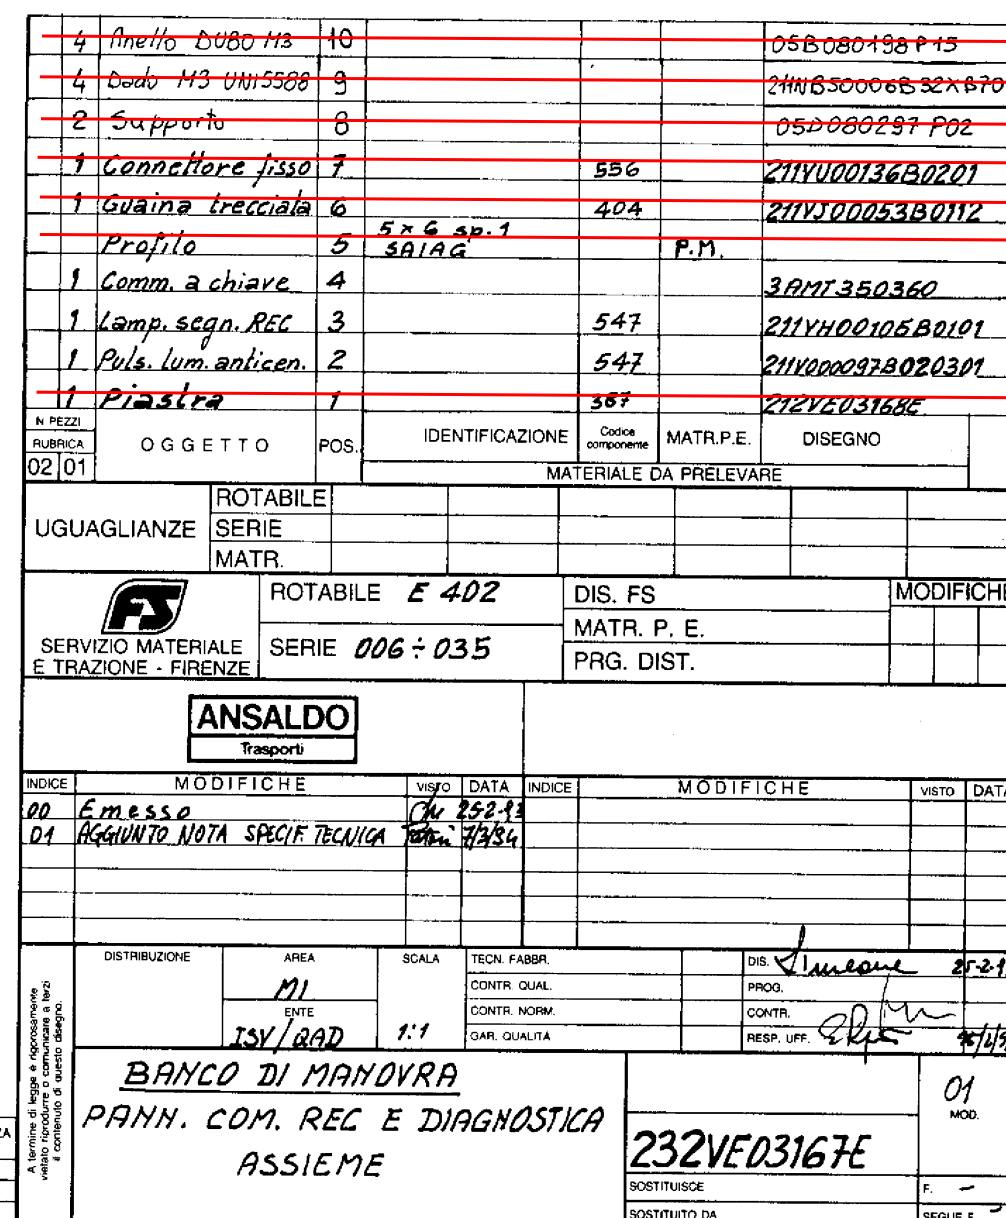 4 Anello DUBO M3 10 05B080198P15
4 Dado M3 UNI5588 9 211NB50006B32XB70
2 Supporto 8 05D080297P02
1 Connettore fisso 7 556 211YU00136B0201
1 Guaina trecciata 6 404 211VJ00053B0112
Profilo 5 5x6 sp.1 SAIAG P.M.
1 Comm. a chiave 4 3AMT350360
1 Lamp. segn. REC 3 547 211YH00105B0101
1 Puls. lum. anticen. 2 547 211V000097B020301
1 Piastra 1 367 212VE03168E
N PEZZI
RUBRICA OGGETTO POS. IDENTIFICAZIONE Codice componente MATR.P.E. DISEGNO
02 01 MATERIALE DA PRELEVARE
UGUAGLIANZE
ROTABILE
SERIE
MATR.
FS
SERVIZIO MATERIALE
E TRAZIONE - FIRENZE
ROTABILE E 402
SERIE 006÷035
DIS. FS
MATR. P. E.
PRG. DIST.
MODIFICHE
ANSALDO
Trasporti
INDICE MODIFICHE VISTO DATA INDICE MODIFICHE VISTO DATA
00 Emesso 25-2-93
01 AGGIUNTO NOTA SPECIF. TECNICA 7/3/94
A termine di legge è rigorosamente
vietato riprodurre o comunicare a terzi
il contenuto di questo disegno.
DISTRIBUZIONE
AREA
MI
ENTE
ISV/QAD
SCALA
1:1
TECN. FABBR.
CONTR. QUAL.
CONTR. NORM.
GAR. QUALITÀ
DIS. Simeone 25-2-9
PROG.
CONTR.
RESP. UFF.
BANCO DI MANOVRA
PANN. COM. REC E DIAGNOSTICA
ASSIEME
232VE03167E
01
MOD.
SOSTITUISCE
F. -
SOSTITUITO DA
SEGUE F. -